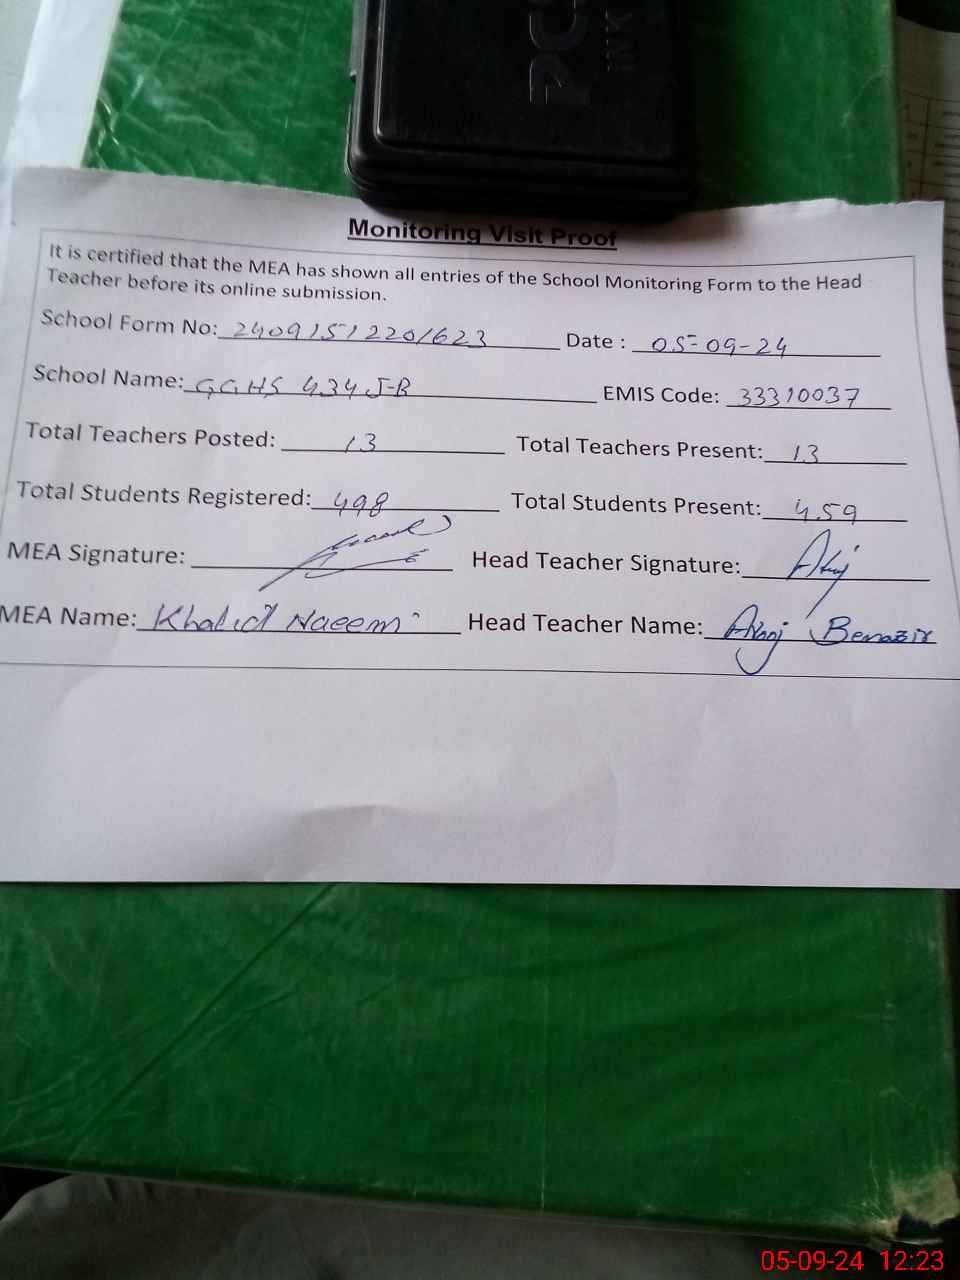 INK
Monitoring Visit Proof
It is certified that the MEA has shown all entries of the School Monitoring Form to the Head
Teacher before its online submission.
School Form No: 24091512201623 Date : 05-09-24
School Name: GGHS 434 J-B EMIS Code: 33310037
Total Teachers Posted: 13 Total Teachers Present: 13
Total Students Registered: 498 Total Students Present: 459
MEA Signature: Head Teacher Signature:
MEA Name: Khalid Naeem Head Teacher Name: Benazir
05-09-24 12:23